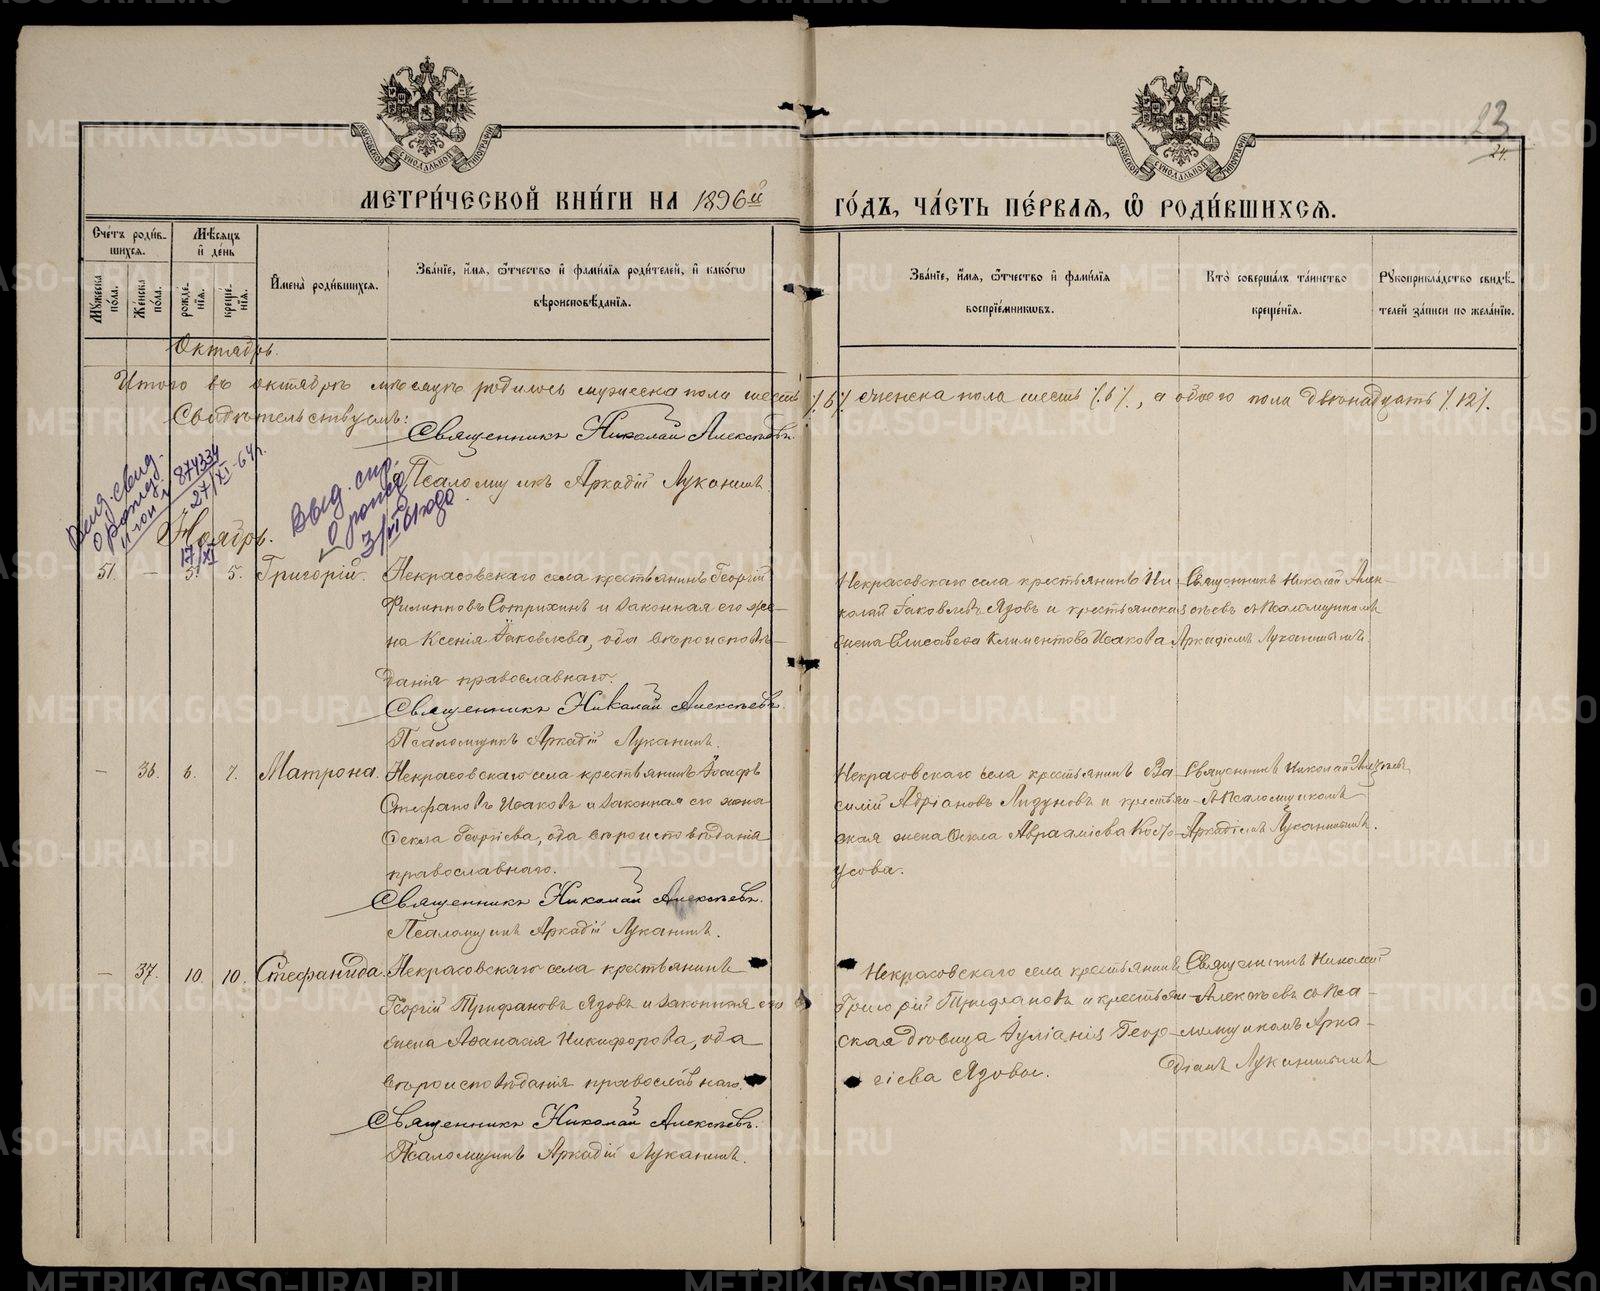 23
24.
МЕТРИ́ЧЕСКОЙ КНИ́ГИ НА 1896й ГО́ДЪ, ЧА́СТЬ ПЕ́РВАѦ, Ѽ РОДИ́ВШИХСѦ.
Сче́тъ роди́в-
шихсѧ.
Мѣ́сѧцъ
и҆ де́нь
Мꙋ́жеска по́ла.
Же́нска по́ла.
рожде́-
нїѧ.
креще́-
нїѧ.
И҆мена̀ роди́вшихсѧ.
Зва́нїе, и҆́мѧ, ѻ҆́тчество и҆ фами́лїѧ роди́телей, и҆ како́гѡ
вѣроисповѣ́данїѧ.
Зва́нїе, и҆́мѧ, ѻ҆́тчество и҆ фами́лїѧ
воспрїе́мникѡвъ.
Кто̀ соверша́лъ та́инство
креще́нїѧ.
Рꙋкоприкла́дство свидѣ́-
телей за́писи по жела́нїю.
Октябрь.
Итого въ октябрѣ мѣсяцѣ родилось мужеска пола шесть /.6/. женска пола шесть /.6/., а обоего пола двѣнадцать /.12/.
Свидѣтельствуемъ:
Священникъ Николай Алексѣевъ.
Псаломщикъ Аркадій Луканинъ.
874334
27/XI-64г.
Выд. спр.
о рожд
Ноябрь.
17/XI
51. — 5. 5. Григорій. Некрасовскаго села крестьянинъ Георгій
Филипповъ Сотрихинъ и законная его же-
на Ксенія Іаковлева, оба вѣроисповѣ-
данія православнаго.
Священникъ Николай Алексѣевъ.
Псаломщикъ Аркадій Луканинъ.
Некрасовскаго села крестьянинъ Ни-
колай Іаковлевъ Язовъ и крестьянская
жена Елисавета Климентова Исакова
Священникъ Николай Алек-
сѣевъ съ псаломщикомъ
Аркадіемъ Луканинымъ
— 36. 6. 7. Матрона. Некрасовскаго села крестьянинъ Іосифъ
Стефановъ Исаковъ и законная его жена
Ѳекла Георгіева, оба вѣроисповѣданія
православнаго.
Священникъ Николай Алексѣевъ.
Псаломщикъ Аркадій Луканинъ.
Некрасовскаго села крестьянинъ Ва-
силій Адріановъ Лизуновъ и крестьян-
ская жена Ѳекла Аврааміева Кос-
усова.
Священникъ Николай Алексѣевъ
съ псаломщикомъ
Аркадіемъ Луканинымъ.
— 37. 10. 10. Стефанида. Некрасовскаго села крестьянинъ
Георгій Трифановъ Язовъ и законная его
жена Аѳанасія Никифорова, оба
вѣроисповѣданія православнаго.
Священникъ Николай Алексѣевъ.
Псаломщикъ Аркадій Луканинъ.
Некрасовскаго села крестьянинъ
Григорій Трифановъ и крестьян-
ская дѣвица Іуліанія Геор-
гіева Язовы.
Священникъ Николай
Алексѣевъ съ пса-
ломщикомъ Арка-
діемъ Луканинымъ
METRIKI.GASO-URAL.RU